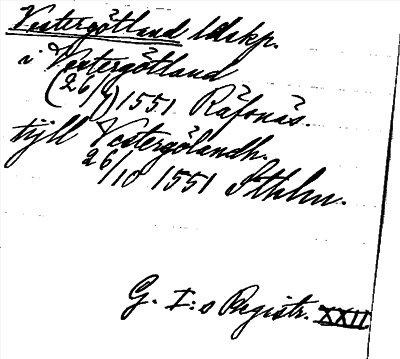 Vestergötland ldskp.
i Vestergötland
(26/9) 1551 Räfsnäs.
tijll Vestergölandh.
26/10 1551 Sthlm.
G. I:s Registr. XXII